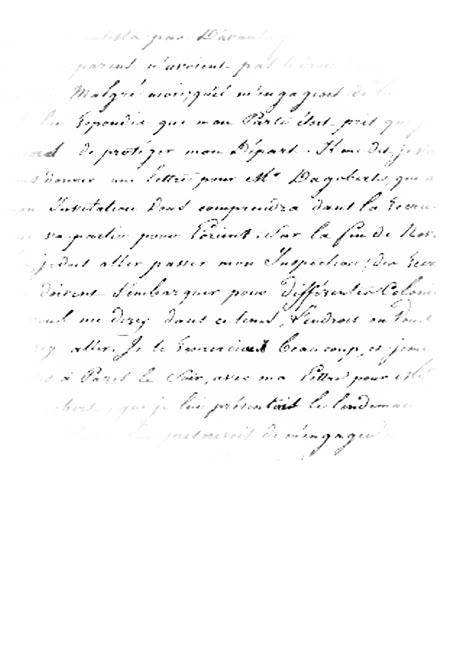 insista pas Davanta
parens n'avoient pas
Malgré moi, qu'il m'engageoit de
lui Repondis que mon Parti étoit pris
de protéger mon Départ. Il me dit, je
donner une lettre pour Mr Dagoberte, que
Invitation Vous comprendra dans la Recrue
va partir pour L'orient. Sur la fin de Nov
je dois aller passer mon Inspection, des Recr
doivent s'embarquer pour différentes Coloni
vous me direz dans ce tems, L'endroit ou Vous
aller. Je le Remerciai Beaucoup, et je me
à Paris le Soir, avec ma Lettre pour Mr
que je lui présentois le lendemain
de m'engager